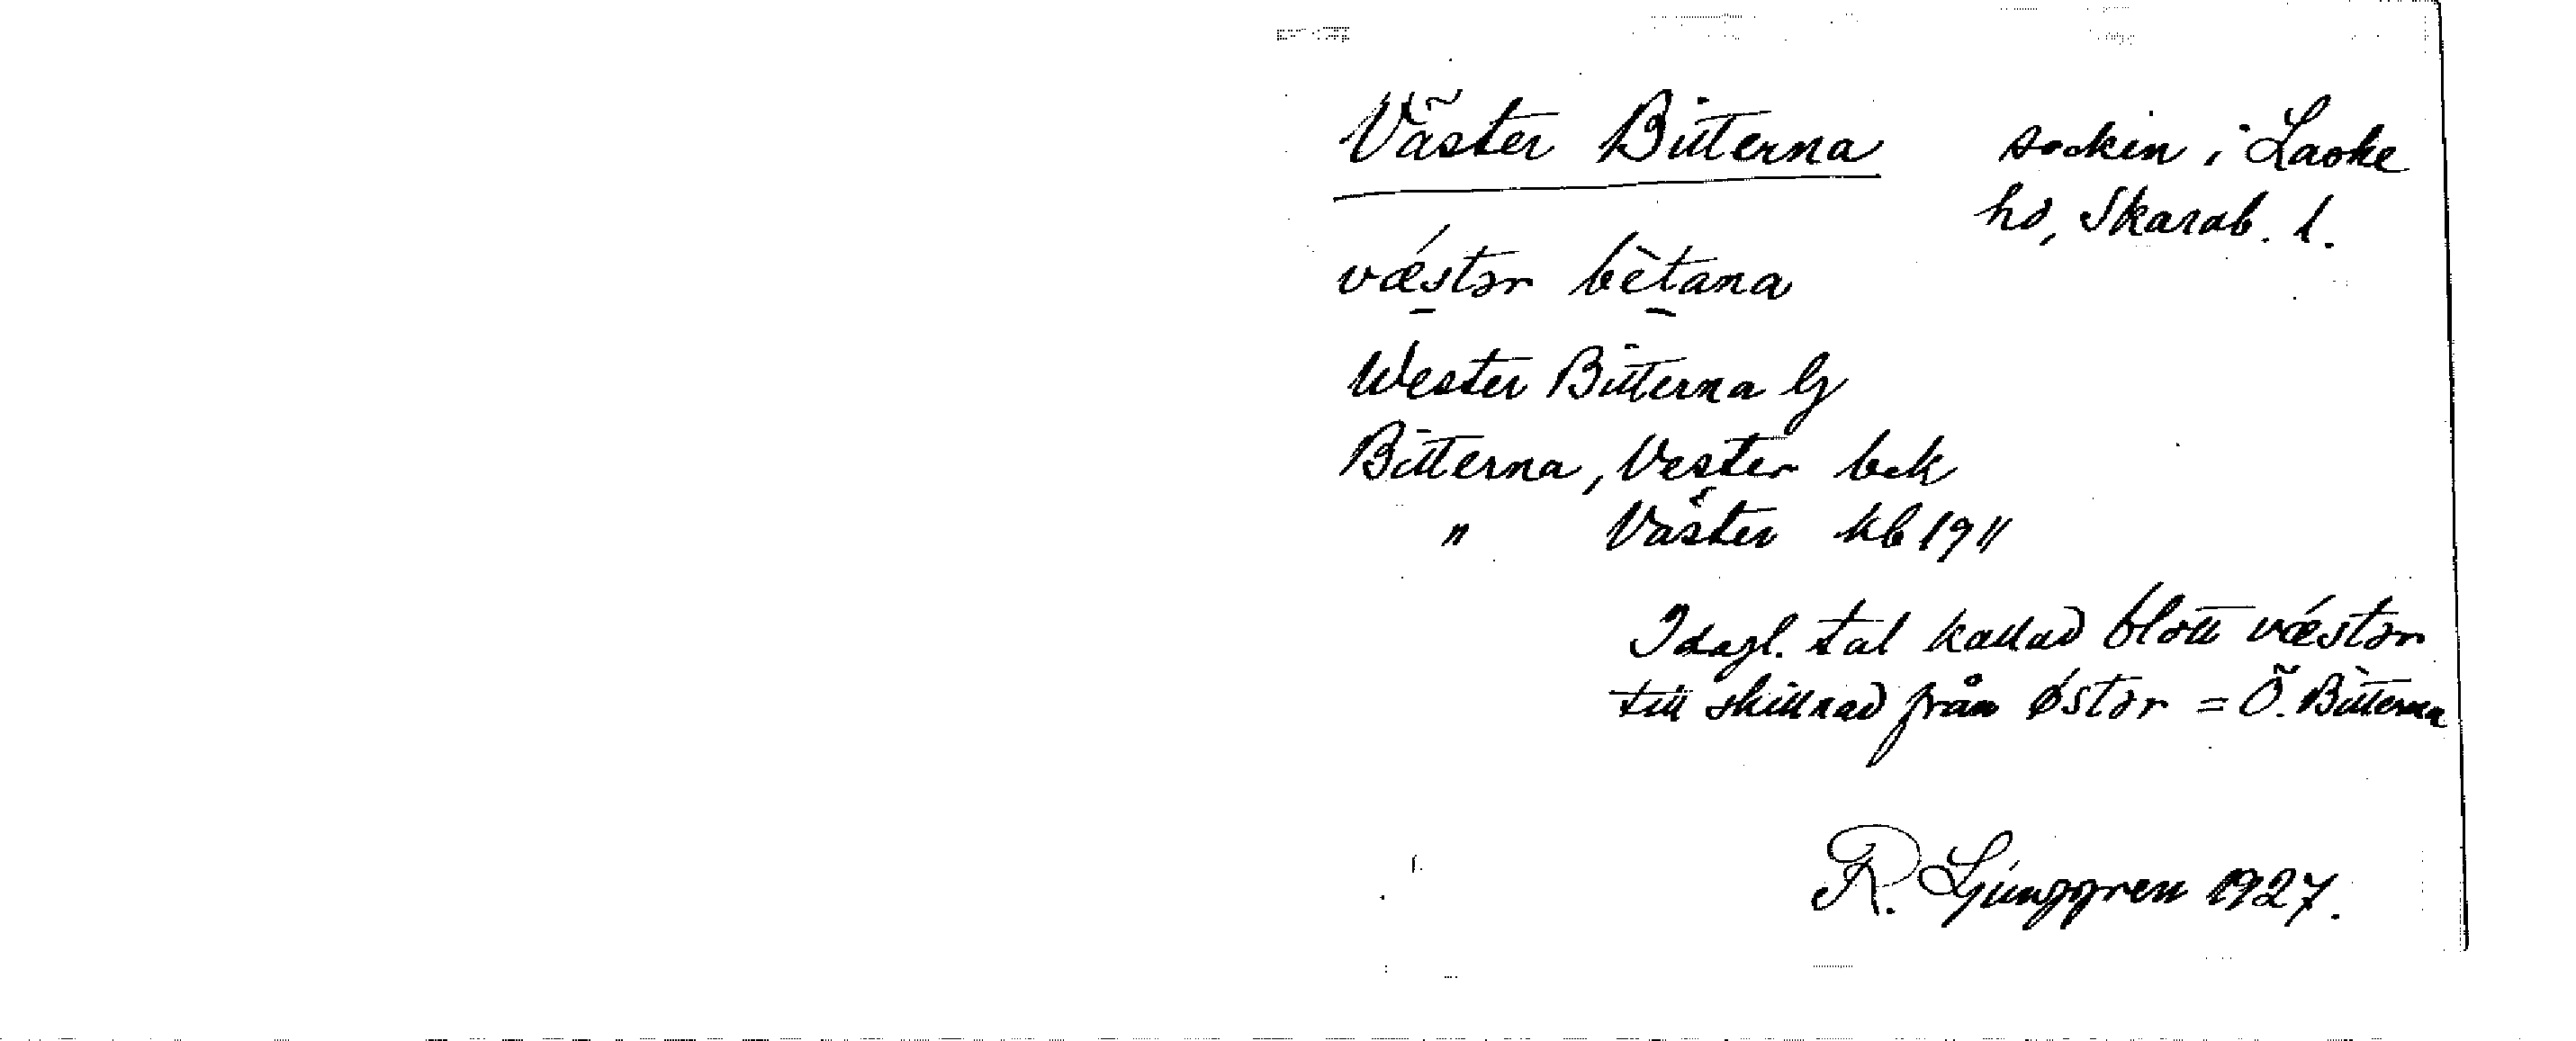 Väster Bitterna socken i Laske
hd, Skarab. l.
vǽstər bètana
Wester Bitterna Gj
Bitterna, Vester bok
" Väster kb 1911
I dagl. tal kallad blott vǽstər
till skillnad från østər = Ö. Bitterna
R. Ljunggren 1927.